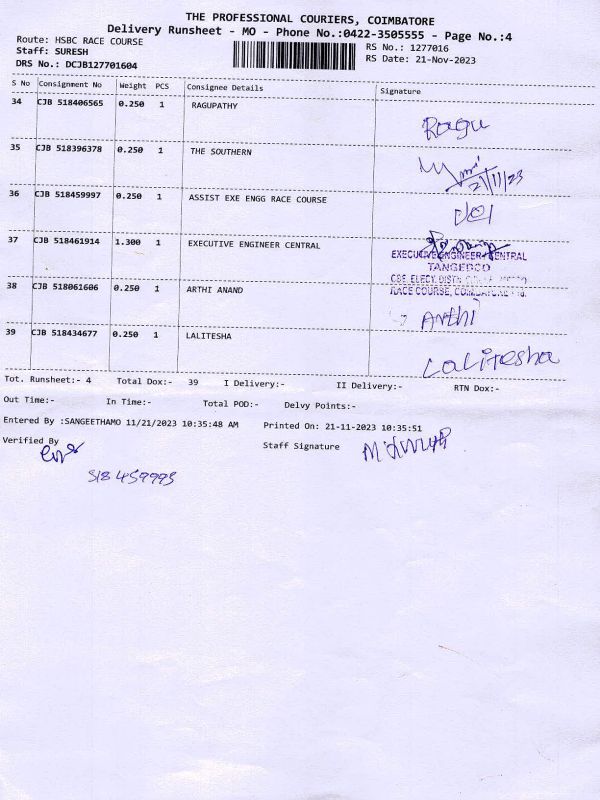 THE PROFESSIONAL COURIERS, COIMBATORE
Delivery Runsheet - MO - Phone No.:0422-3505555 - Page No.:4
Route: HSBC RACE COURSE RS No.: 1277016
Staff: SURESH RS Date: 21-Nov-2023
DRS No.: DCJB127701604
S No Consignment No Weight PCS Consignee Details Signature
34 CJB 518406565 0.250 1 RAGUPATHY Ragu
35 CJB 518396378 0.250 1 THE SOUTHERN
21/11/23
36 CJB 518459997 0.250 1 ASSIST EXE ENGG RACE COURSE
37 CJB 518461914 1.300 1 EXECUTIVE ENGINEER CENTRAL
EXECUTIVE ENGINEER CENTRAL
TANGEDCO
CBE. ELECY. DISTN.
RACE COURSE, COIMBATORE
38 CJB 518061606 0.250 1 ARTHI ANAND Arthi
39 CJB 518434677 0.250 1 LALITESHA Lalitesha
Tot. Runsheet:- 4 Total Dox:- 39 I Delivery:- II Delivery:- RTN Dox:-
Out Time:- In Time:- Total POD:- Delvy Points:-
Entered By :SANGEETHAMO 11/21/2023 10:35:48 AM Printed On: 21-11-2023 10:35:51
Verified By Staff Signature
518459993